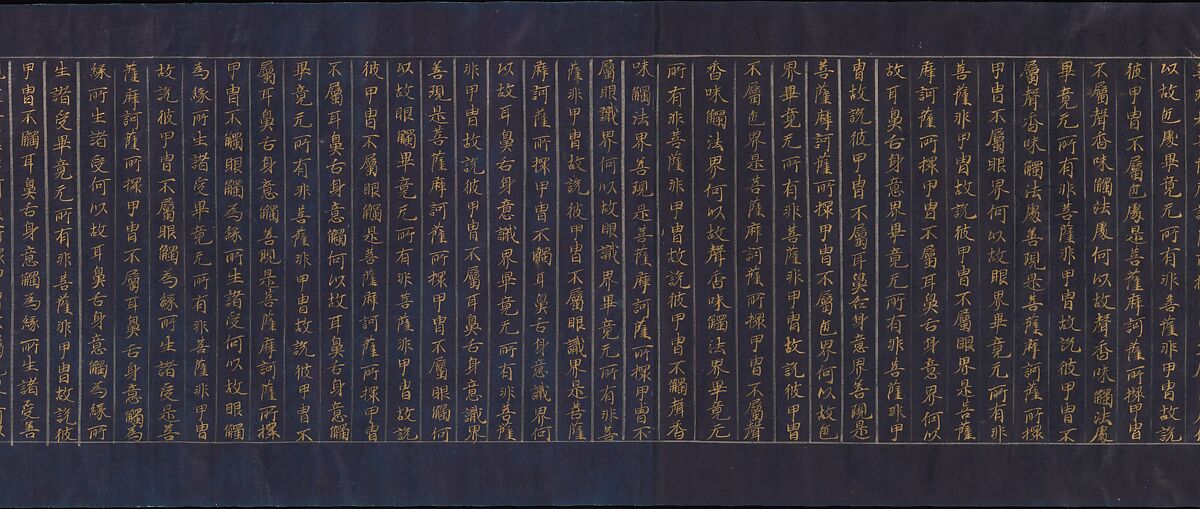 以故色處畢竟无所有非菩薩非甲冑故說
彼甲冑不屬色處是菩薩摩訶薩所擐甲冑
不屬聲香味觸法處何以故聲香味觸法處
畢竟无所有非菩薩非甲冑故說彼甲冑不
屬聲香味觸法處善現是菩薩摩訶薩所擐
甲冑不屬眼界何以故眼界畢竟无所有非
菩薩非甲冑故說彼甲冑不屬眼界是菩薩
摩訶薩所擐甲冑不屬耳鼻舌身意界何以
故耳鼻舌身意界畢竟无所有非菩薩非甲
冑故說彼甲冑不屬耳鼻舌身意界善現是
菩薩摩訶薩所擐甲冑不屬色界何以故色
界畢竟无所有非菩薩非甲冑故說彼甲冑
不屬色界是菩薩摩訶薩所擐甲冑不屬聲
香味觸法界何以故聲香味觸法界畢竟无
所有非菩薩非甲冑故說彼甲冑不觸聲香
味觸法界善現是菩薩摩訶薩所擐甲冑不
屬眼識界何以故眼識界畢竟无所有非菩
薩非甲冑故說彼甲冑不屬眼識界是菩薩
摩訶薩所擐甲冑不觸耳鼻舌身意識界何
以故耳鼻舌身意識界畢竟无所有非菩薩
非甲冑故說彼甲冑不屬耳鼻舌身意識界
善現是菩薩摩訶薩所擐甲冑不屬眼觸何
以故眼觸畢竟无所有非菩薩非甲冑故說
彼甲冑不屬眼觸是菩薩摩訶薩所擐甲冑
不屬耳鼻舌身意觸何以故耳鼻舌身意觸
畢竟无所有非菩薩非甲冑故說彼甲冑不
屬耳鼻舌身意觸善現是菩薩摩訶薩所擐
甲冑不觸眼觸為緣所生諸受何以故眼觸
為緣所生諸受畢竟无所有非菩薩非甲冑
故說彼甲冑不屬眼觸為緣所生諸受是菩
薩摩訶薩所擐甲冑不屬耳鼻舌身意觸為
緣所生諸受何以故耳鼻舌身意觸為緣所
生諸受畢竟无所有非菩薩非甲冑故說彼
甲冑不觸耳鼻舌身意觸為緣所生諸受善